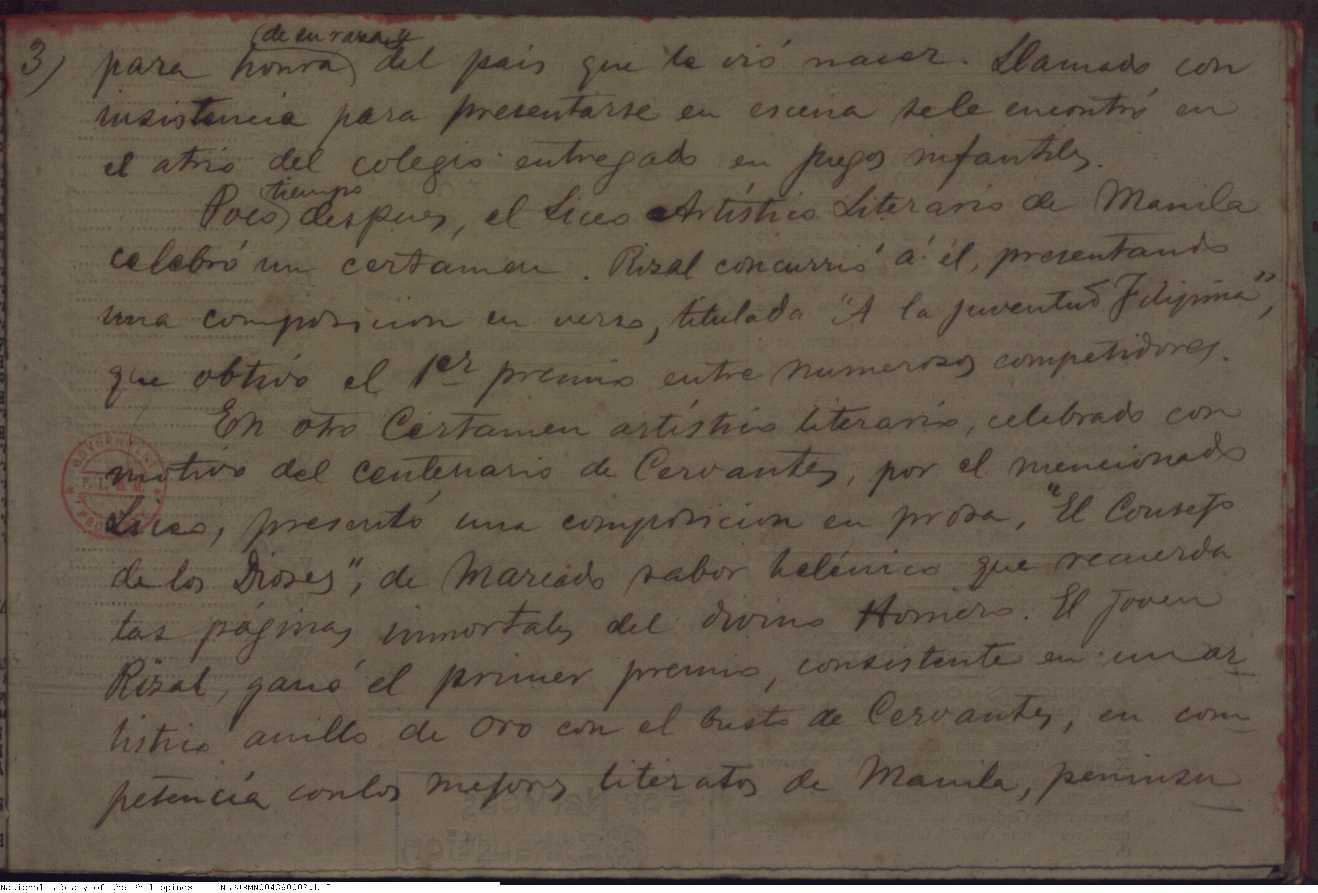 3)
(de su raza y
para honra) del pais que le vió nacer. Llamado con
insistencia para presentarse en escena se le encontró en
el atrio del colegio entregado en juegos infantiles.
tiempo
Poco) despues, el Liceo Artístico Literario de Manila
celebró un certamen. Rizal concurrió á él, presentando
una composicion en verso, titulada "A la juventud Filipina",
que obtivo el 1er premio entre numerosos competidores.
En otro Certamen artístico literario, celebrado con
motivo del centenario de Cervantes, por el mencionado
Liceo, presentó una composicion en prosa, "El Consejo
de los Dioses", de marcado sabor helénico que recuerda
las páginas inmortales del divino Homero. El joven
Rizal, ganó el primer premio, consistente en un ar-
tistico anillo de oro con el busto de Cervantes, en com-
petencia con los mejores literatos de Manila, peninsu-
National Library of the Philippines